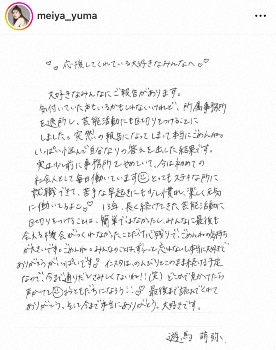 meiya_yuma
応援してくれている大好きなみんなへ
大好きなみんなにご報告があります。
気付いていた方もいるかもしれないけれど、所属事務所
を退所し、芸能活動にも区切りをつけることに
しました。突然の報告になってしまって本当にごめんね。
いっぱい悩んで自分なりの答えを出した結果です。
実は少し前に事務所をやめていて、今は初めての
社会人として毎日働いています とってもステキな所に
就職できて、苦手な早起きにも少し慣れ、楽しく元気
に働いているよ 13年、長く続けてきた芸能活動に
区切りをつけることは、簡単ではなかったし、みんなに最後に
会える機会がつくれなかったことだけ心残りで ごめんねの気持ち
ありがとうがいっぱいです
インスタはのんびりとこのまま続ける予定
なので、今まで通りだしさみしくないね!!(笑) どこかで見かけたら
声かけて
最後まで読んでくれて
ありがとう。今まで本当にありがとう。大好きです。
遊馬 萌弥